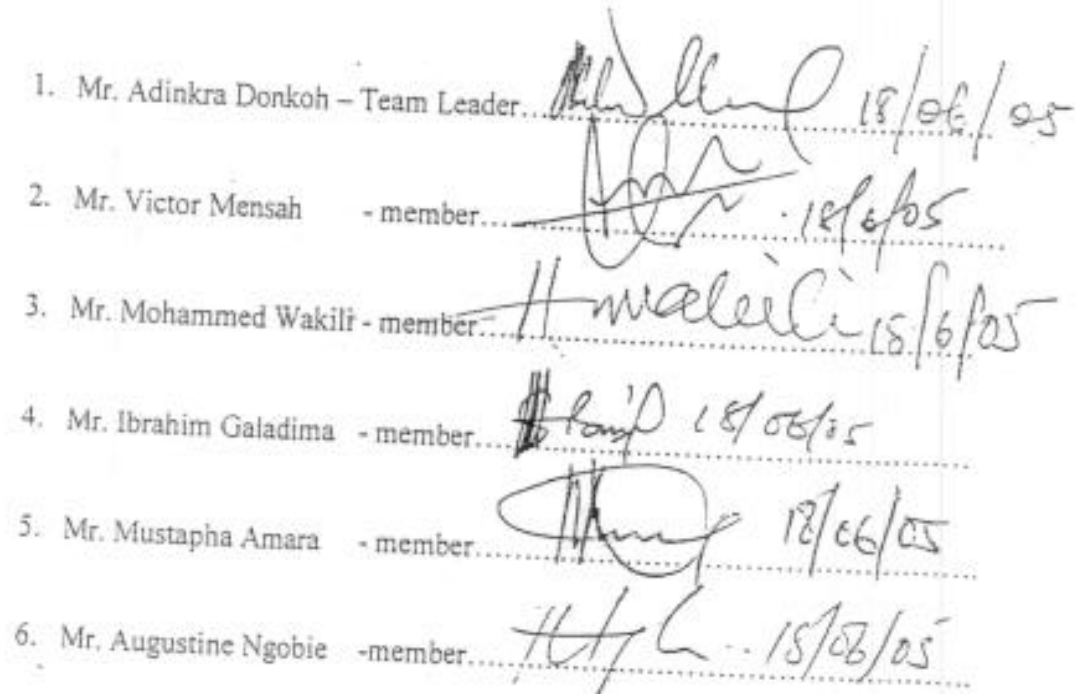 1. Mr. Adinkra Donkoh – Team Leader.. 18/06/05
2. Mr. Victor Mensah - member.. 18/6/05
3. Mr. Mohammed Wakili - member 18/6/05
4. Mr. Ibrahim Galadima - member.. 18/06/05
5. Mr. Mustapha Amara - member.. 18/06/05
6. Mr. Augustine Ngobie -member.. 18/06/05